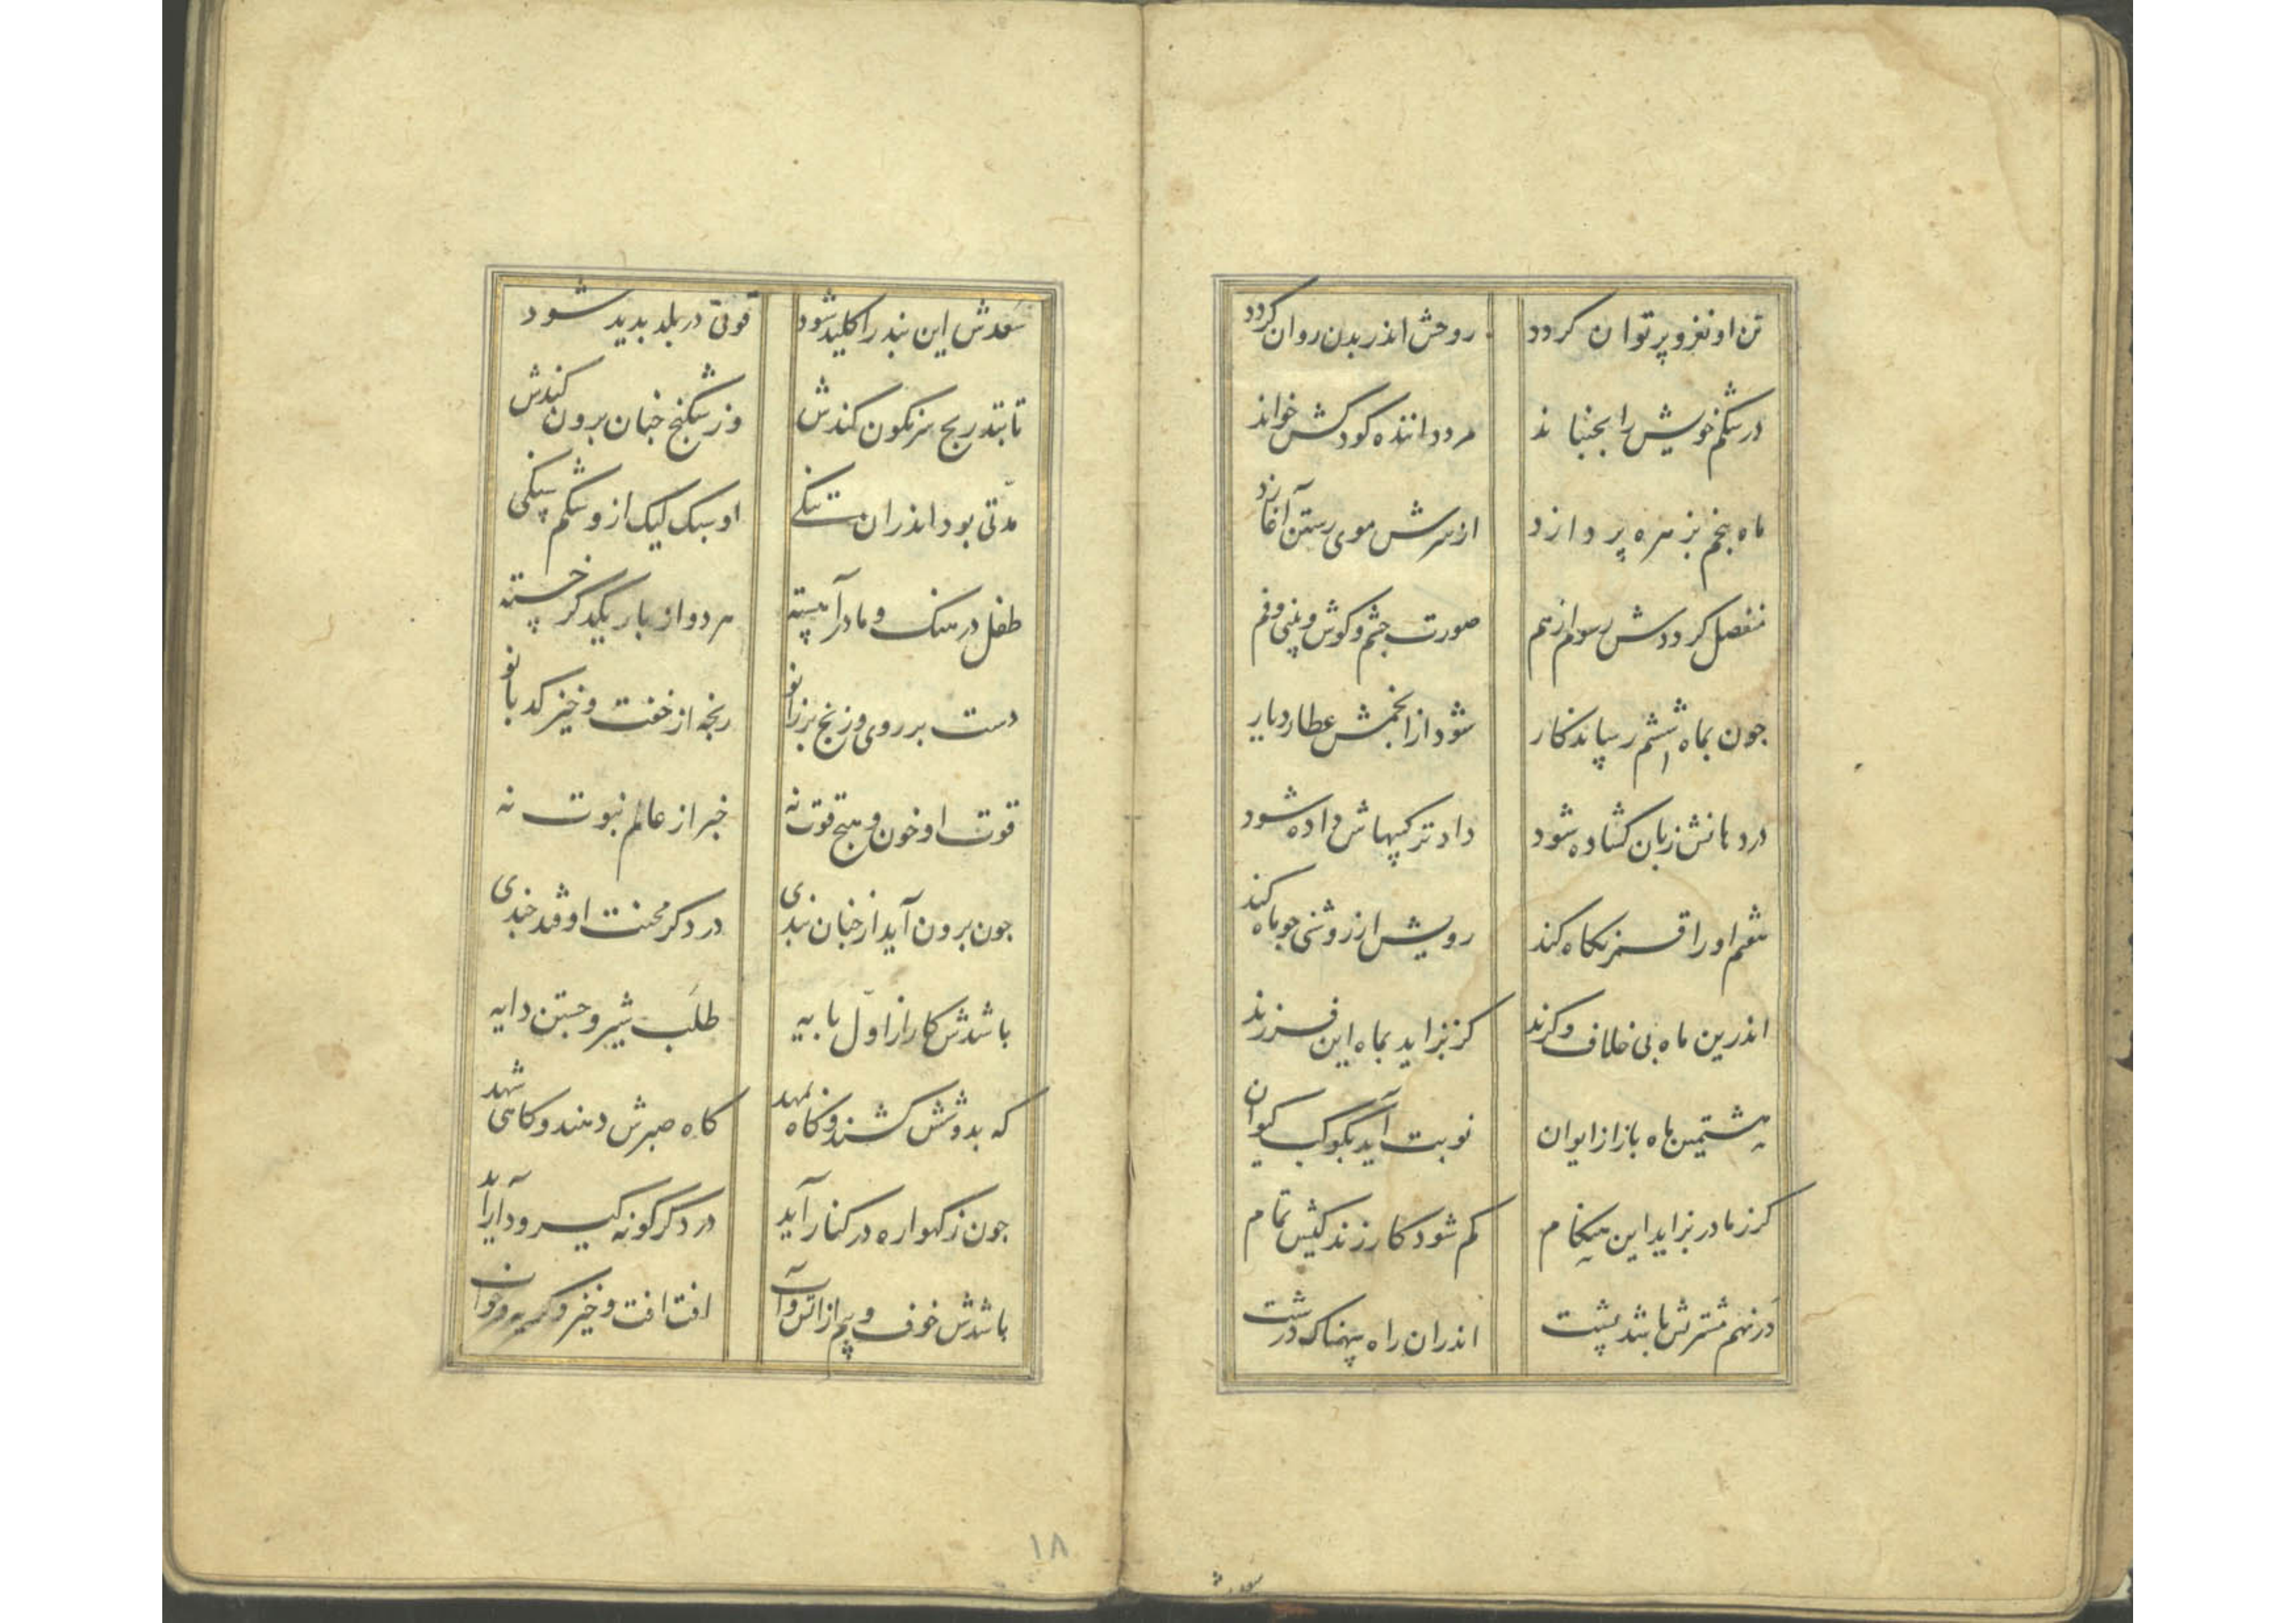 تن او نغز و پرتوان کردد روحش اندر بدن روان کردد
در شکم خویش را بجنباند مرد داننده کودکش خواند
ماه پنجم بزهره پردازد از سرش موی رستن آغازد
منفصل کرددش رسوم از هم صورت چشم و کوش و بینی و فم
جون بماه ششم رساند کار شود از انجمش عطارد یار
در دهانش زبان کشاده شود داد ترکیبهاش داده شود
هفتم او را قمر نکاه کند رویش از روشنی جو ماه کند
اندرین ماه بی خلاف و کزند کر بزاید بماه این فرزند
هشتمین ماه باز از ایوان نوبت آید بکوکب کیوان
کر ز مادر بزاید این هنکام کم شود کار زندکیش تمام
در نهم مشتریش باشد پشت اندران راه سهمناک درشت
سعدش
سعدش این بند را کلید شود قوتی در بلد بدید شود
تا بتدریج سرنکون کندش وز شکنج جنان برون کندش
مدّتی بود اندران تنکی او سبک لیک ازو شکم سنکی
طفل در سنک و مادر آهسته هر دو از بار یکدکر خسته
دست بر روی و زنخ بر زانو رنجه از خفت و خیز کدبانو
قوت او خون و هیج قوت نه خبر از عالم نبوت نه
جون برون آید از جنان بندی در دکر محنت اوفتد جندی
باشدش کار از اوّل بایه طلب شیر و جستن دایه
که بدوشش کشند و کاه بمهد کاه صبرش دهند و کاهی شهد
جون ز کهواره در کنار آید در دکر کونه کیر و دار آید
باشدش خوف و بیم از آتش و آب افت افت و خیز و
۱۸